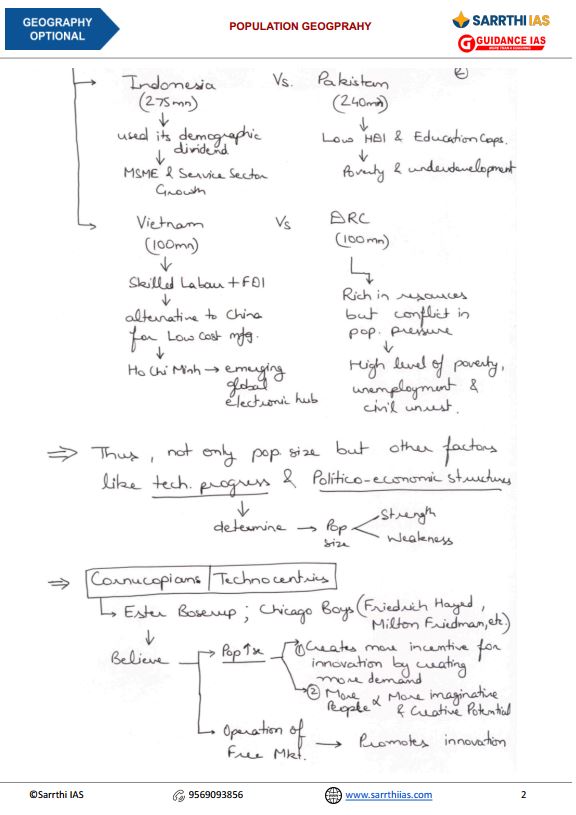 GEOGRAPHY
OPTIONAL
POPULATION GEOGPRAHY
SARRTHI IAS
GUIDANCE IAS
Indonesia Vs. Pakistan
(275mn) (240mn)
used its demographic
dividend
Low HDI & Education Caps.
MSME & Service Sector
Growth
Poverty & underdevelopment
Vietnam Vs DRC
(100mn) (100mn)
Skilled Labour + FDI
Rich in resources
but conflict in
pop. pressure
alternative to China
for Low Cost mfg.
Ho Chi Minh → emerging
global
electronic hub
High level of poverty,
unemployment &
civil unrest.
⇒ Thus, not only pop. size but other factors
like tech. progress & Politico-economic structures
determine → Pop
size
Strength
Weakness
⇒ Cornucopians | Technocentrics
Ester Boserup ; Chicago Boys (Friedrich Hayed,
Milton Friedman, etc)
Believe
Pop ↑se
① Creates more incentive for
innovation by creating
more demand
② More
People ∝ More imaginative
& Creative Potential
Operation of
Free Mkt. → Promotes innovation
©Sarrthi IAS 9569093856 www.sarrthiias.com 2